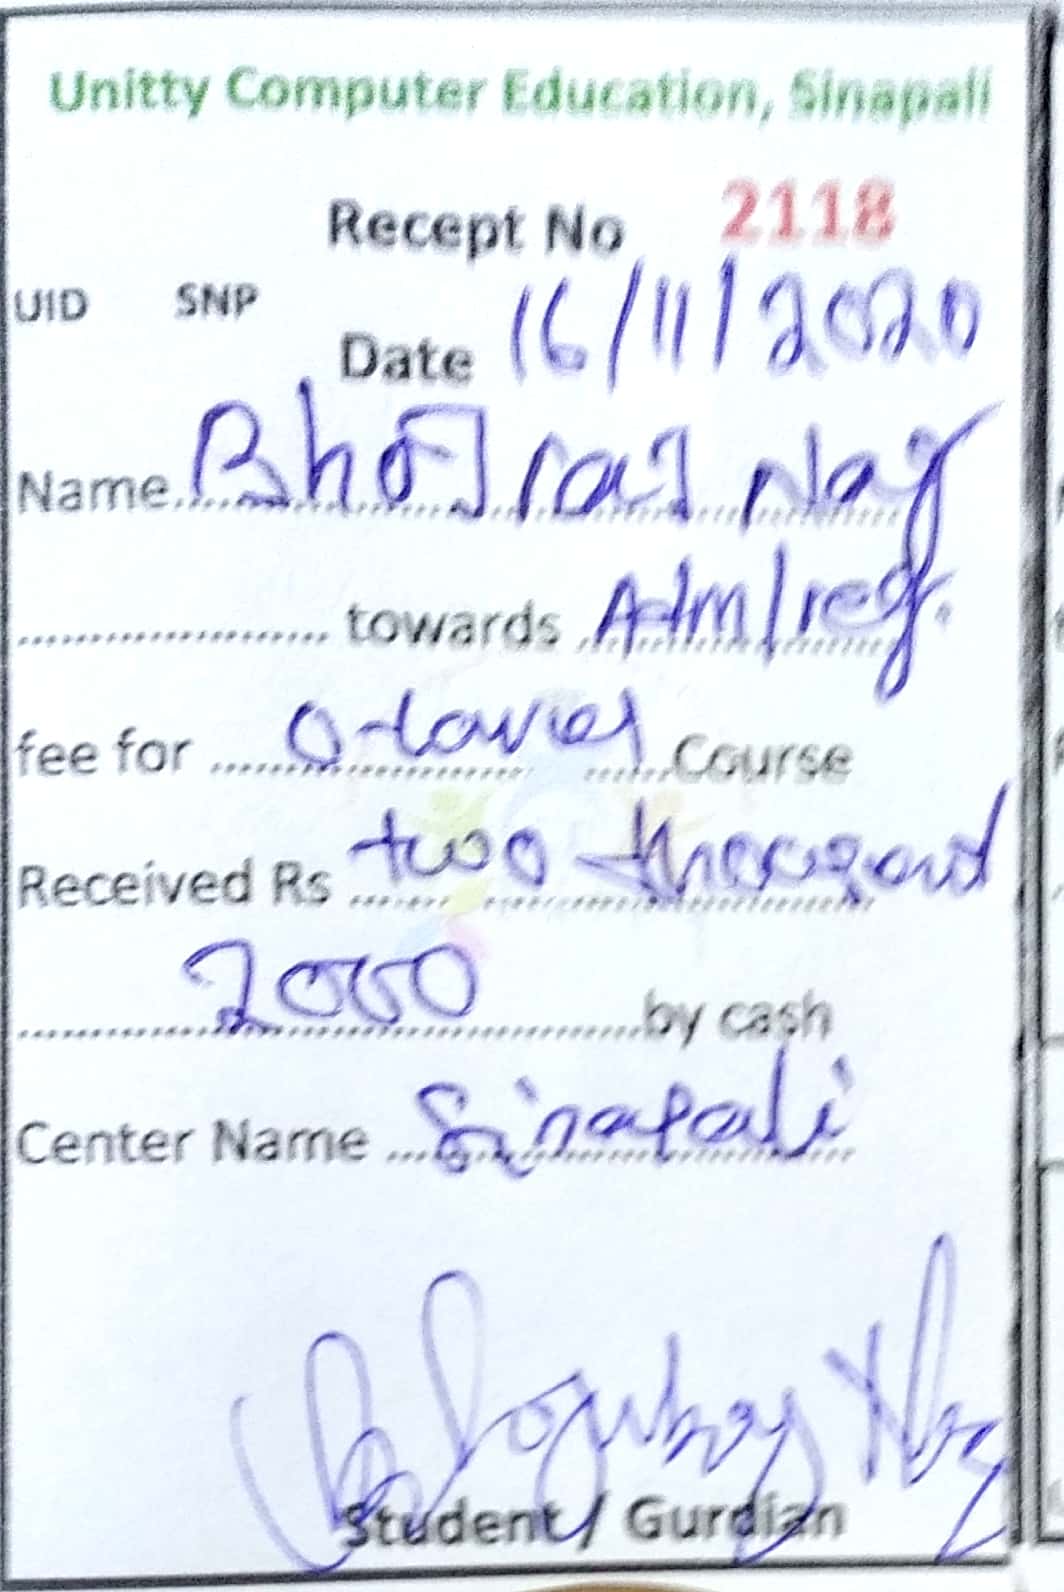 Unitty Computer Education, Sinapali
Recept No 2118
UID SNP
Date 16/11/2020
Name Bhojraj Nag
towards Adm/reg.
fee for O-Lavel Course
Received Rs two thousand
2000 by cash
Center Name Sinapali
Student / Gurdian